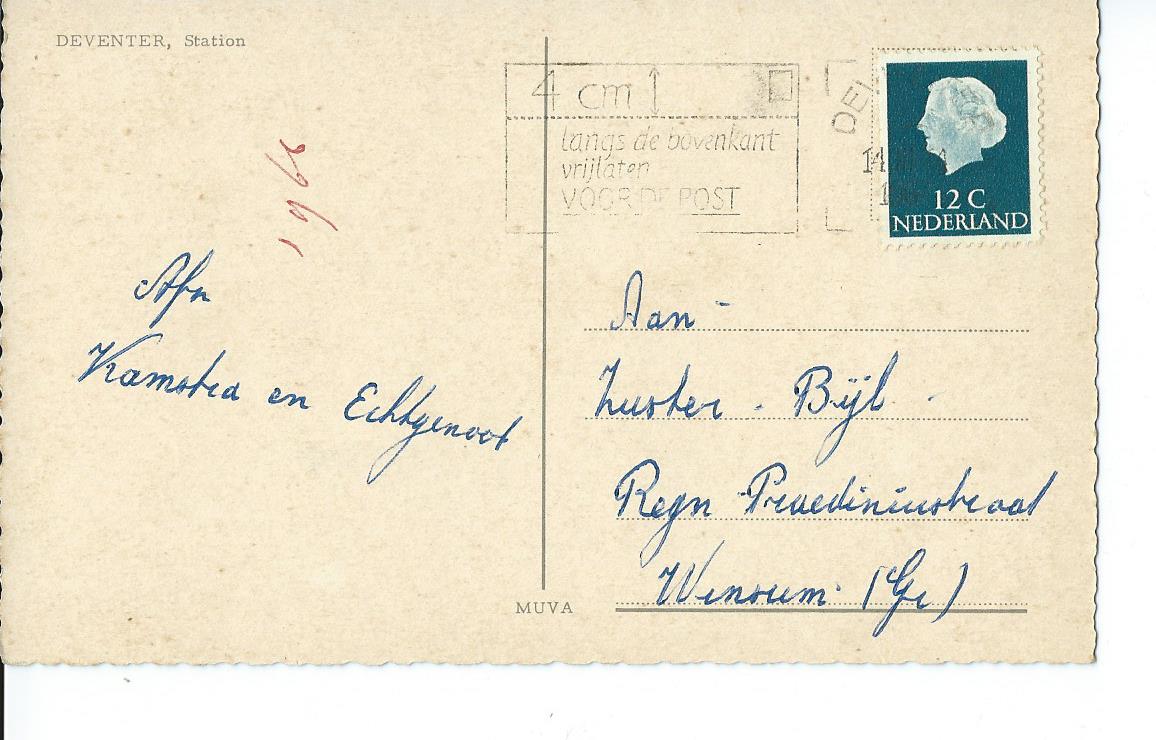 DEVENTER, Station
4 cm
langs de bovenkant
vrijlaten
VOOR DE POST
DE
12 C
NEDERLAND
1966
Afn
Kamstra en Echtgenoot
Aan
Zuster Bijl
Regn Praediniusstraat
Winsum (Gr)
MUVA